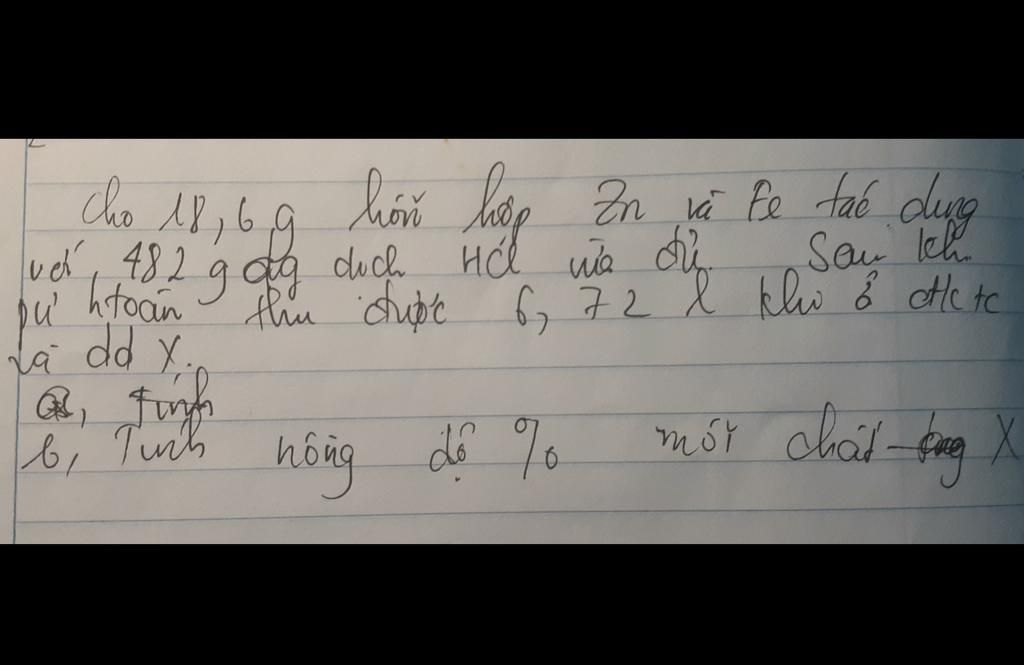 Cho 18,6 g hỗn hợp Zn và Fe tác dụng
với, 482 g dịch HCl vừa đủ. Sau khi
pứ htoàn thu được 6,72 l khí ở đktc
và dd X.
a, Tính
b, Tính nồng độ % mỗi chất trong X